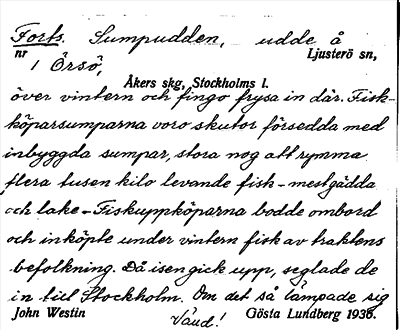 Forts. Sumpudden, udde å
nr 1 Örsö, Ljusterö sn,
Åkers skg, Stockholms l.
över vintern och fingo frysa in där. Fisk-
köparsumparna voro skutor försedda med
inbyggda sumpar, stora nog att rymma
flera tusen kilo levande fisk - mest gädda
och lake - Fiskuppköparna bodde ombord
och inköpte under vintern fisk av traktens
befolkning. Då isen gick upp, seglade de
in till Stockholm. Om det så lämpade sig
John Westin Vänd! Gösta Lundberg 1936.